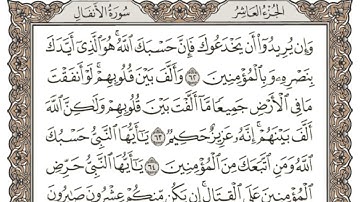 الجزء العاشر
سورة الأنفال
وَإِن يُرِيدُوٓا۟ أَن يَخْدَعُوكَ فَإِنَّ حَسْبَكَ ٱللَّهُ ۚ هُوَ ٱلَّذِىٓ أَيَّدَكَ
بِنَصْرِهِۦ وَبِٱلْمُؤْمِنِينَ ٦٢ وَأَلَّفَ بَيْنَ قُلُوبِهِمْ ۚ لَوْ أَنفَقْتَ
مَا فِى ٱلْأَرْضِ جَمِيعًا مَّآ أَلَّفْتَ بَيْنَ قُلُوبِهِمْ وَلَٰكِنَّ ٱللَّهَ
أَلَّفَ بَيْنَهُمْ ۚ إِنَّهُۥ عَزِيزٌ حَكِيمٌ ٦٣ يَٰٓأَيُّهَا ٱلنَّبِىُّ حَسْبُكَ
ٱللَّهُ وَمَنِ ٱتَّبَعَكَ مِنَ ٱلْمُؤْمِنِينَ ٦٤ يَٰٓأَيُّهَا ٱلنَّبِىُّ حَرِّضِ
ٱلْمُؤْمِنِينَ عَلَى ٱلْقِتَالِ ۚ إِن يَكُن مِّنكُمْ عِشْرُونَ صَٰبِرُونَ